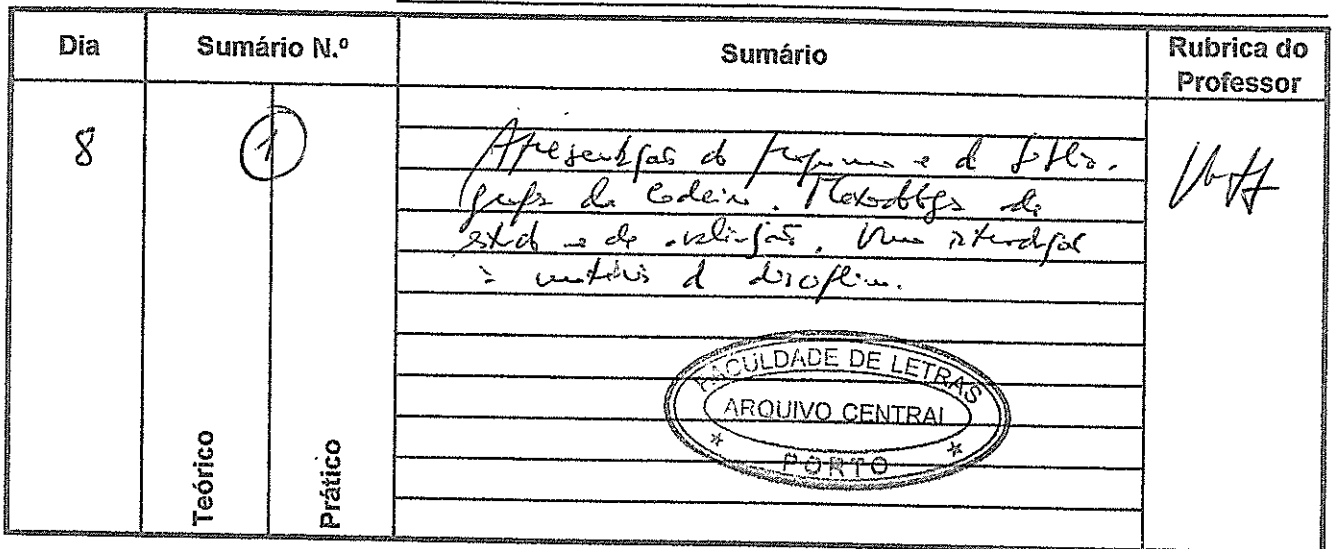 Dia
Sumário N.º
Sumário
Rubrica do
Professor
8
1
Apresentação do programa e da biblio-
grafia da cadeira. Metodologia de
estudo e de avaliação. Uma introdução
à matéria da disciplina.
Teórico
Prático
FACULDADE DE LETRAS
ARQUIVO CENTRAL
PORTO